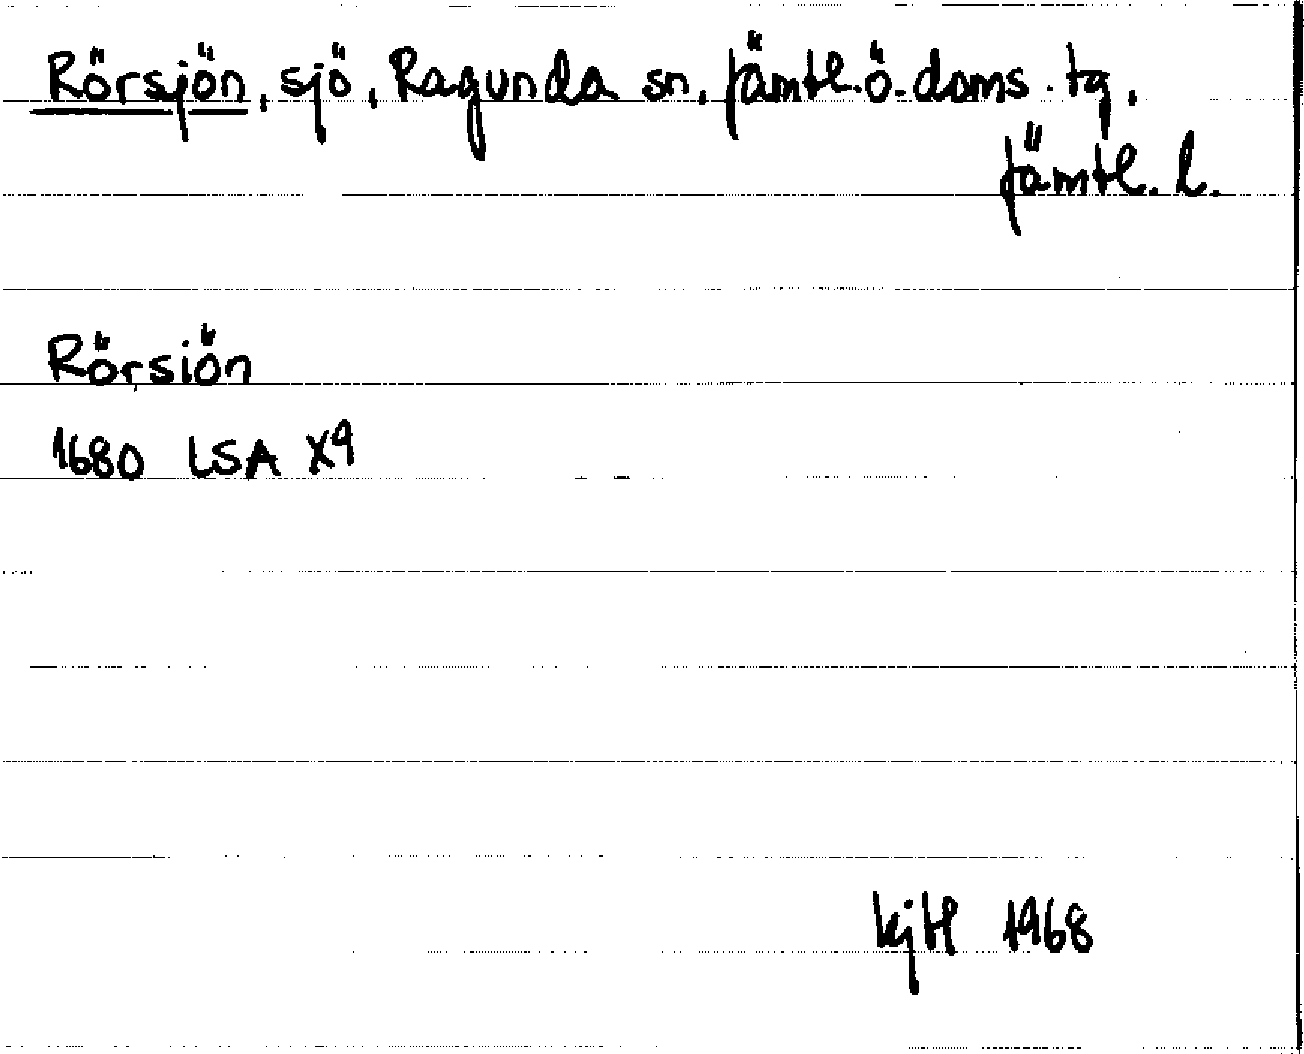 Rörsjön, sjö, Ragunda sn, Jämtl. ö. doms. tg,
Jämtl. l.
Rörsiön
1680 LSA X9
1968